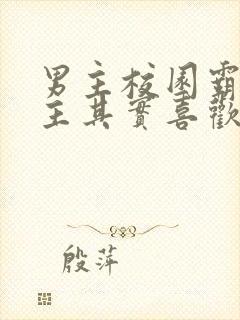 男主校园霸
主其實喜歡
殷萍